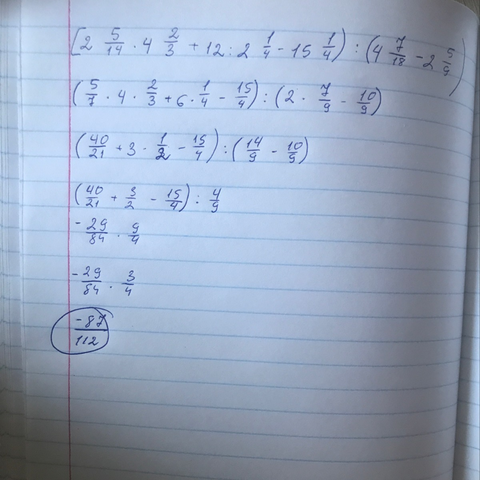 [2 5/14 · 4 2/3 + 12 : 2 1/4 - 15 1/4) : (4 7/18 - 2 5/9)
(5/7 · 4 · 2/3 + 6 · 1/4 - 15/4) : (2 · 7/9 - 10/9)
(40/21 + 3 · 1/2 - 15/4) : (14/9 - 10/9)
(40/21 + 3/2 - 15/4) : 4/9
-29/84 · 9/4
-29/84 · 3/4
-87/112